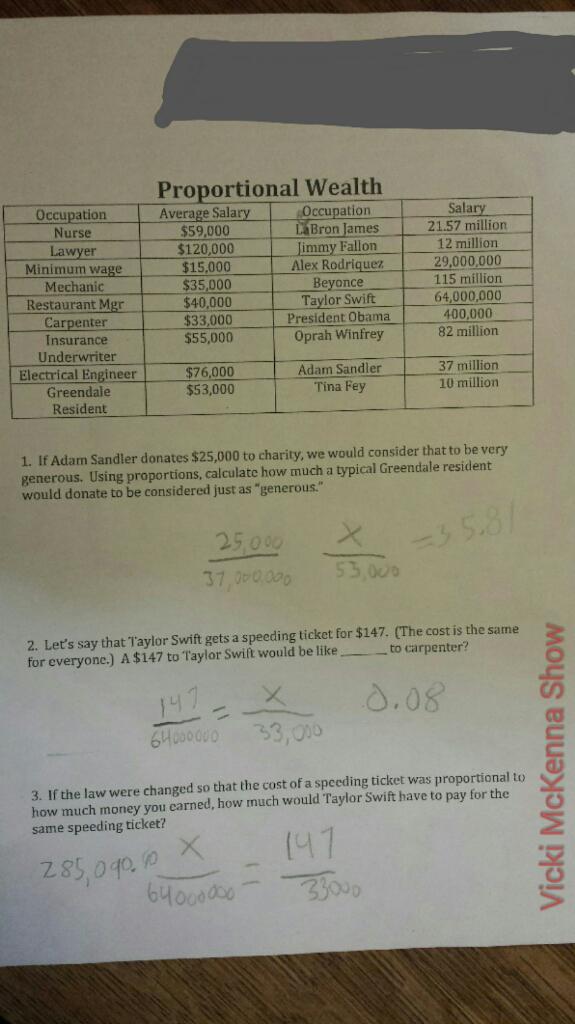 Proportional Wealth
Occupation Average Salary Occupation Salary
Nurse $59,000 LaBron James 21.57 million
Lawyer $120,000 Jimmy Fallon 12 million
Minimum wage $15,000 Alex Rodriquez 29,000,000
Mechanic $35,000 Beyonce 115 million
Restaurant Mgr $40,000 Taylor Swift 64,000,000
Carpenter $33,000 President Obama 400,000
Insurance $55,000 Oprah Winfrey 82 million
Underwriter
Electrical Engineer $76,000 Adam Sandler 37 million
Greendale $53,000 Tina Fey 10 million
Resident
1. If Adam Sandler donates $25,000 to charity, we would consider that to be very
generous. Using proportions, calculate how much a typical Greendale resident
would donate to be considered just as "generous."
25,000 X =35.81
37,000,000 53,000
2. Let's say that Taylor Swift gets a speeding ticket for $147. (The cost is the same
for everyone.) A $147 to Taylor Swift would be like ______ to carpenter?
147 = X 0.08
64000000 33,000
3. If the law were changed so that the cost of a speeding ticket was proportional to
how much money you earned, how much would Taylor Swift have to pay for the
same speeding ticket?
285,090.90 X = 147
64000000 33000
Vicki McKenna Show